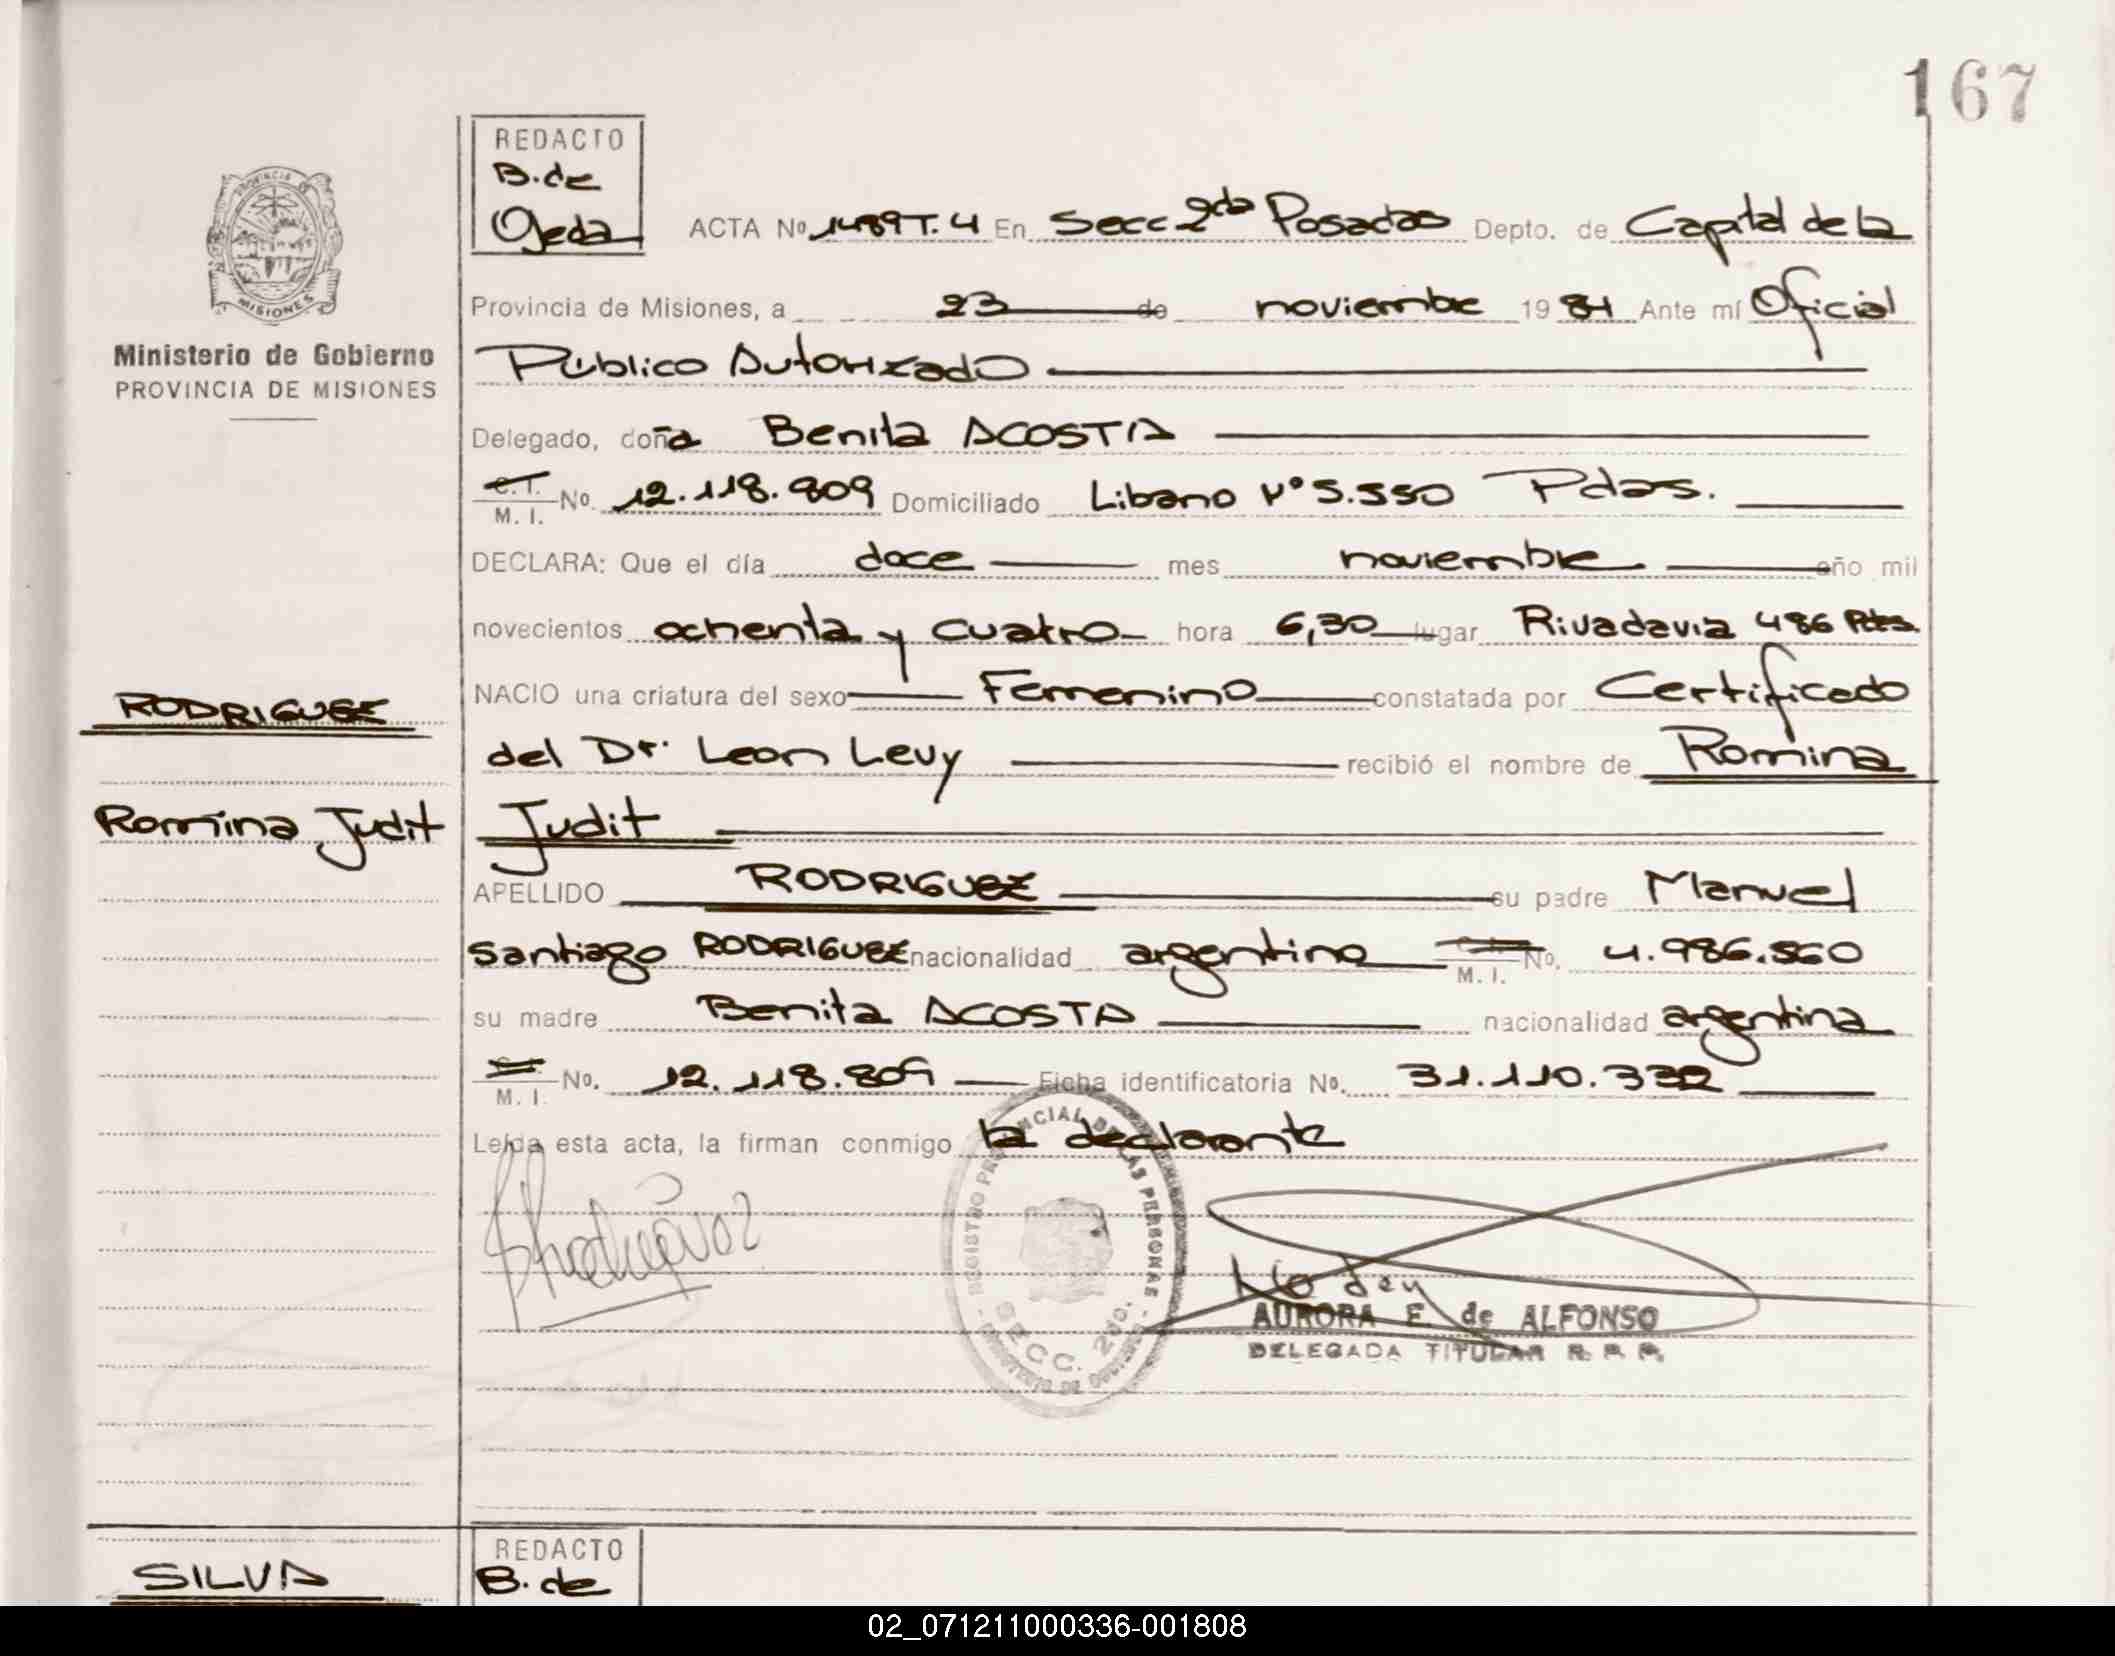 167
REDACTO
B. de
Ojeda
ACTA Nº 1489 T. 4 En Secc 2da Posadas Depto. de Capital de la
Provincia de Misiones, a 23 de noviembre 1984 Ante mí Oficial
Público Autorizado
Delegado, doña Benita ACOSTA
C. I.
M. I. No. 12.118.809 Domiciliado Libano Nº 5.550 Pdas.
DECLARA: Que el día doce mes noviembre año mil
novecientos ochenta y cuatro hora 6,30 lugar Rivadavia 486 Pdas.
NACIO una criatura del sexo Femenino constatada por Certificado
del Dr. Leon Levy recibió el nombre de Romina
Judit
APELLIDO RODRIGUEZ su padre Manuel
Santiago RODRIGUEZ nacionalidad argentino M. I. No. 4.986.560
su madre Benita ACOSTA nacionalidad argentina
M. I. No. 12.118.809 Ficha identificatoria No. 31.110.332
Leída esta acta, la firman conmigo la declarante
PROVINCIA DE
MISIONES
Ministerio de Gobierno
PROVINCIA DE MISIONES
RODRIGUEZ
Romina Judit
REGISTRO PROVINCIAL DE LAS PERSONAS
SECC. 2da.
MINISTERIO DE GOBIERNO
AURORA E. de ALFONSO
DELEGADA TITULAR R. P. P.
SILVA
REDACTO
B. de
02_071211000336-001808